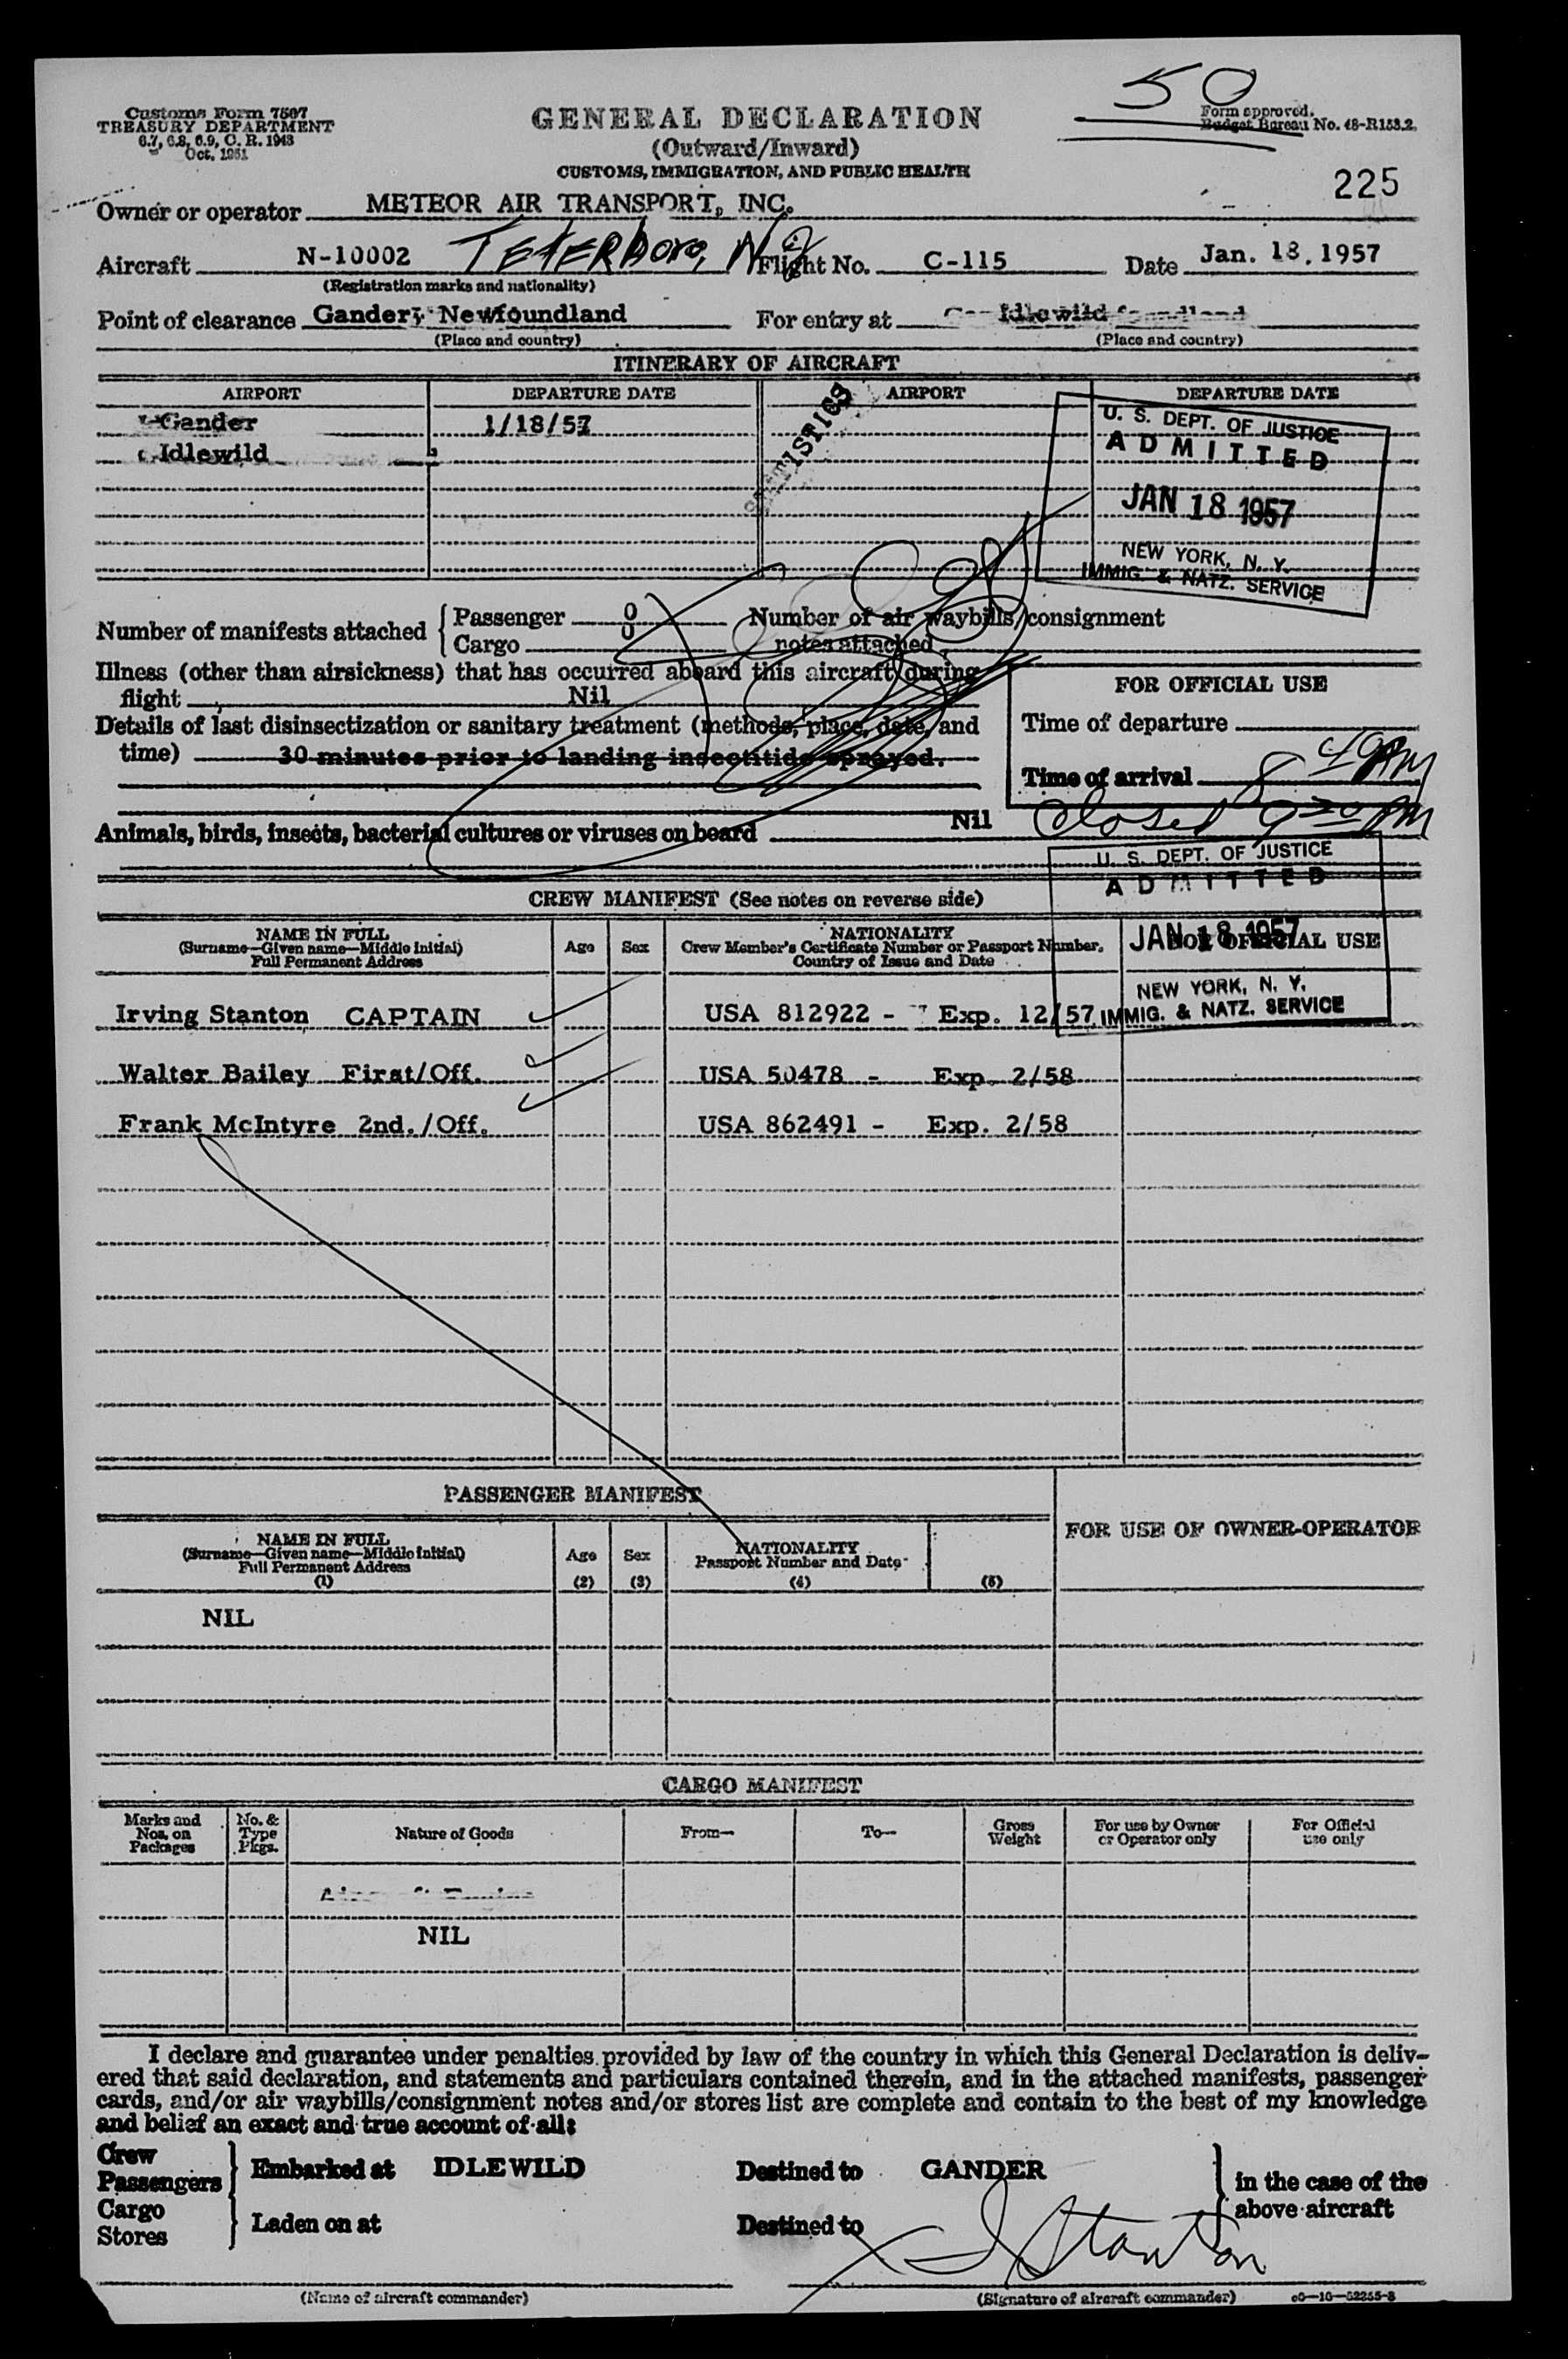 50
Customs Form 7507
TREASURY DEPARTMENT
6.7, 6.8, 6.9, C. R. 1943
Oct. 1951
GENERAL DECLARATION
(Outward/Inward)
CUSTOMS, IMMIGRATION, AND PUBLIC HEALTH
Form approved.
Budget Bureau No. 48-R153.2.
225
Owner or operator METEOR AIR TRANSPORT, INC.
Aircraft N-10002 TETERBORO, NJ Flight No. C-115 Date Jan. 18, 1957
(Registration marks and nationality)
Point of clearance Gander, Newfoundland For entry at Idlewild
(Place and country) (Place and country)
ITINERARY OF AIRCRAFT
AIRPORT DEPARTURE DATE AIRPORT DEPARTURE DATE
Gander 1/18/57
Idlewild
STATISTICS
U. S. DEPT. OF JUSTICE
ADMITTED
JAN 18 1957
NEW YORK, N. Y.
IMMIG. & NATZ. SERVICE
Number of manifests attached { Passenger 0 Number of air waybills/consignment
Cargo 0 notes attached
Illness (other than airsickness) that has occurred aboard this aircraft during
flight Nil
Details of last disinsectization or sanitary treatment (methods, place, date, and
time) 30 minutes prior to landing insectitide sprayed.
FOR OFFICIAL USE
Time of departure
Time of arrival 8 40 PM
Closed 9 20 PM
Animals, birds, insects, bacterial cultures or viruses on board Nil
U. S. DEPT. OF JUSTICE
ADMITTED
JAN 18 1957
NEW YORK, N. Y.
IMMIG. & NATZ. SERVICE
CREW MANIFEST (See notes on reverse side)
NAME IN FULL
(Surname—Given name—Middle initial)
Full Permanent Address
Age Sex
NATIONALITY
Crew Member's Certificate Number or Passport Number,
Country of Issue and Date
FOR OFFICIAL USE
Irving Stanton CAPTAIN USA 812922 - Exp. 12/57
Walter Bailey First/Off. USA 50478 - Exp. 2/58
Frank McIntyre 2nd./Off. USA 862491 - Exp. 2/58
PASSENGER MANIFEST
FOR USE OF OWNER-OPERATOR
NAME IN FULL
(Surname—Given name—Middle initial)
Full Permanent Address
(1)
Age
(2)
Sex
(3)
NATIONALITY
Passport Number and Date
(4)
(5)
NIL
CARGO MANIFEST
Marks and
Nos. on
Packages
No. &
Type
Pkgs.
Nature of Goods
From—
To—
Gross
Weight
For use by Owner
or Operator only
For Official
use only
NIL
I declare and guarantee under penalties provided by law of the country in which this General Declaration is deliv-
ered that said declaration, and statements and particulars contained therein, and in the attached manifests, passenger
cards, and/or air waybills/consignment notes and/or stores list are complete and contain to the best of my knowledge
and belief an exact and true account of all:
Crew
Passengers } Embarked at IDLEWILD Destined to GANDER
Cargo
Stores } Laden on at Destined to
in the case of the
above aircraft
I Stanton
(Name of aircraft commander) (Signature of aircraft commander) c6—16—52255-3